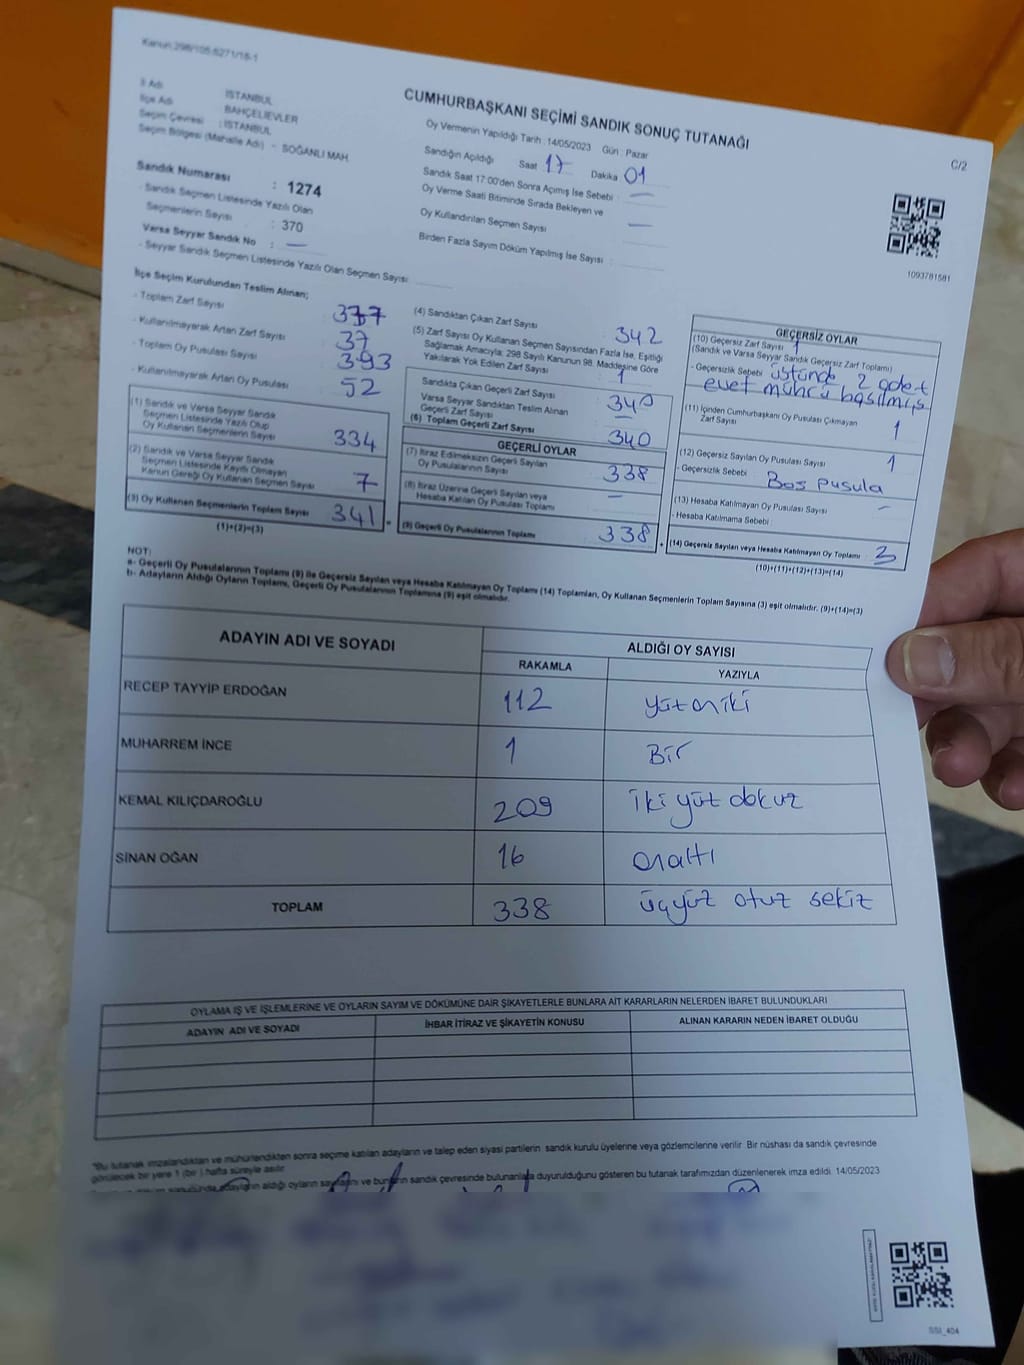 Kanun:298/105-5271/16-1
İl Adı : İSTANBUL
İlçe Adı : BAHÇELİEVLER
Seçim Çevresi : İSTANBUL
Seçim Bölgesi (Mahalle Adı) - SOĞANLI MAH.
Sandık Numarası : 1274
- Sandık Seçmen Listesinde Yazılı Olan
Seçmenlerin Sayısı : 370
Varsa Seyyar Sandık No : —
- Seyyar Sandık Seçmen Listesinde Yazılı Olan Seçmen Sayısı
CUMHURBAŞKANI SEÇİMİ SANDIK SONUÇ TUTANAĞI
Oy Vermenin Yapıldığı Tarih : 14/05/2023 Gün : Pazar
Sandığın Açıldığı Saat 17 Dakika 01
Sandık Saat 17:00'den Sonra Açımış İse Sebebi : —
Oy Verme Saati Bitiminde Sırada Bekleyen ve
Oy Kullandırılan Seçmen Sayısı —
Birden Fazla Sayım Döküm Yapılmış İse Sayısı :
C/2
1093781581
İlçe Seçim Kurulundan Teslim Alınan;
- Toplam Zarf Sayısı 377
- Kullanılmayarak Artan Zarf Sayısı : 37
- Toplam Oy Pusulası Sayısı 393
- Kullanılmayarak Artan Oy Pusulası 52
(1) Sandık ve Varsa Seyyar Sandık
Seçmen Listesinde Yazılı Olup
Oy Kullanan Seçmenlerin Sayısı 334
(2) Sandık ve Varsa Seyyar Sandık
Seçmen Listesinde Kayıtlı Olmayan
Kanun Gereği Oy Kullanan Seçmen Sayısı 7
(3) Oy Kullanan Seçmenlerin Toplam Sayısı 341
(1)+(2)=(3)
(4) Sandıktan Çıkan Zarf Sayısı : 342
(5) Zarf Sayısı Oy Kullanan Seçmen Sayısından Fazla İse, Eşitliği
Sağlamak Amacıyla, 298 Sayılı Kanunun 98. Maddesine Göre
Yakılarak Yok Edilen Zarf Sayısı : 1
Sandıkta Çıkan Geçerli Zarf Sayısı : 340
Varsa Seyyar Sandıktan Teslim Alınan
Geçerli Zarf Sayısı : —
(6) Toplam Geçerli Zarf Sayısı : 340
GEÇERLİ OYLAR
(7) İtiraz Edilmeksizin Geçerli Sayılan
Oy Pusulalarının Sayısı : 338
(8) İtiraz Üzerine Geçerli Sayılan veya
Hesaba Katılan Oy Pusulası Toplamı : —
(9) Geçerli Oy Pusulalarının Toplamı : 338
GEÇERSİZ OYLAR
(10) Geçersiz Zarf Sayısı : 1
(Sandık ve Varsa Seyyar Sandık Geçersiz Zarf Toplamı)
- Geçersizlik Sebebi : üstünde 2 adet
evet mührü basılmış
(11) İçinden Cumhurbaşkanı Oy Pusulası Çıkmayan
Zarf Sayısı : 1
(12) Geçersiz Sayılan Oy Pusulası Sayısı : 1
- Geçersizlik Sebebi : Boş pusula
(13) Hesaba Katılmayan Oy Pusulası Sayısı : —
- Hesaba Katılmama Sebebi :
(14) Geçersiz Sayılan veya Hesaba Katılmayan Oy Toplamı : 3
(10)+(11)+(12)+(13)=(14)
NOT:
a- Geçerli Oy Pusulalarının Toplamı (9) ile Geçersiz Sayılan veya Hesaba Katılmayan Oy Toplamı (14) Toplamları, Oy Kullanan Seçmenlerin Toplam Sayısına (3) eşit olmalıdır. (9)+(14)=(3)
b- Adayların Aldığı Oyların Toplamı, Geçerli Oy Pusulalarının Toplamına (9) eşit olmalıdır.
ADAYIN ADI VE SOYADI ALDIĞI OY SAYISI
RAKAMLA YAZIYLA
RECEP TAYYİP ERDOĞAN 112 yüzoniki
MUHARREM İNCE 1 Bir
KEMAL KILIÇDAROĞLU 209 iki yüz dokuz
SİNAN OĞAN 16 onaltı
TOPLAM 338 üçyüz otuz sekiz
OYLAMA İŞ VE İŞLEMLERİNE VE OYLARIN SAYIM VE DÖKÜMÜNE DAİR ŞİKAYETLERLE BUNLARA AİT KARARLARIN NELERDEN İBARET BULUNDUKLARI
ADAYIN ADI VE SOYADI İHBAR İTİRAZ VE ŞİKAYETİN KONUSU ALINAN KARARIN NEDEN İBARET OLDUĞU
"Bu tutanak imzalandıktan ve mühürlendikten sonra seçime katılan adayların ve talep eden siyasi partilerin sandık kurulu üyelerine veya gözlemcilerine verilir. Bir nüshası da sandık çevresinde
görülecek bir yere 1 (bir ) hafta süreyle asılır.
adayların aldığı oyların sayılarını ve bunların sandık çevresinde bulunanlara duyurulduğunu gösteren bu tutanak tarafımızdan düzenlenerek imza edildi. 14/05/2023
SSI_404